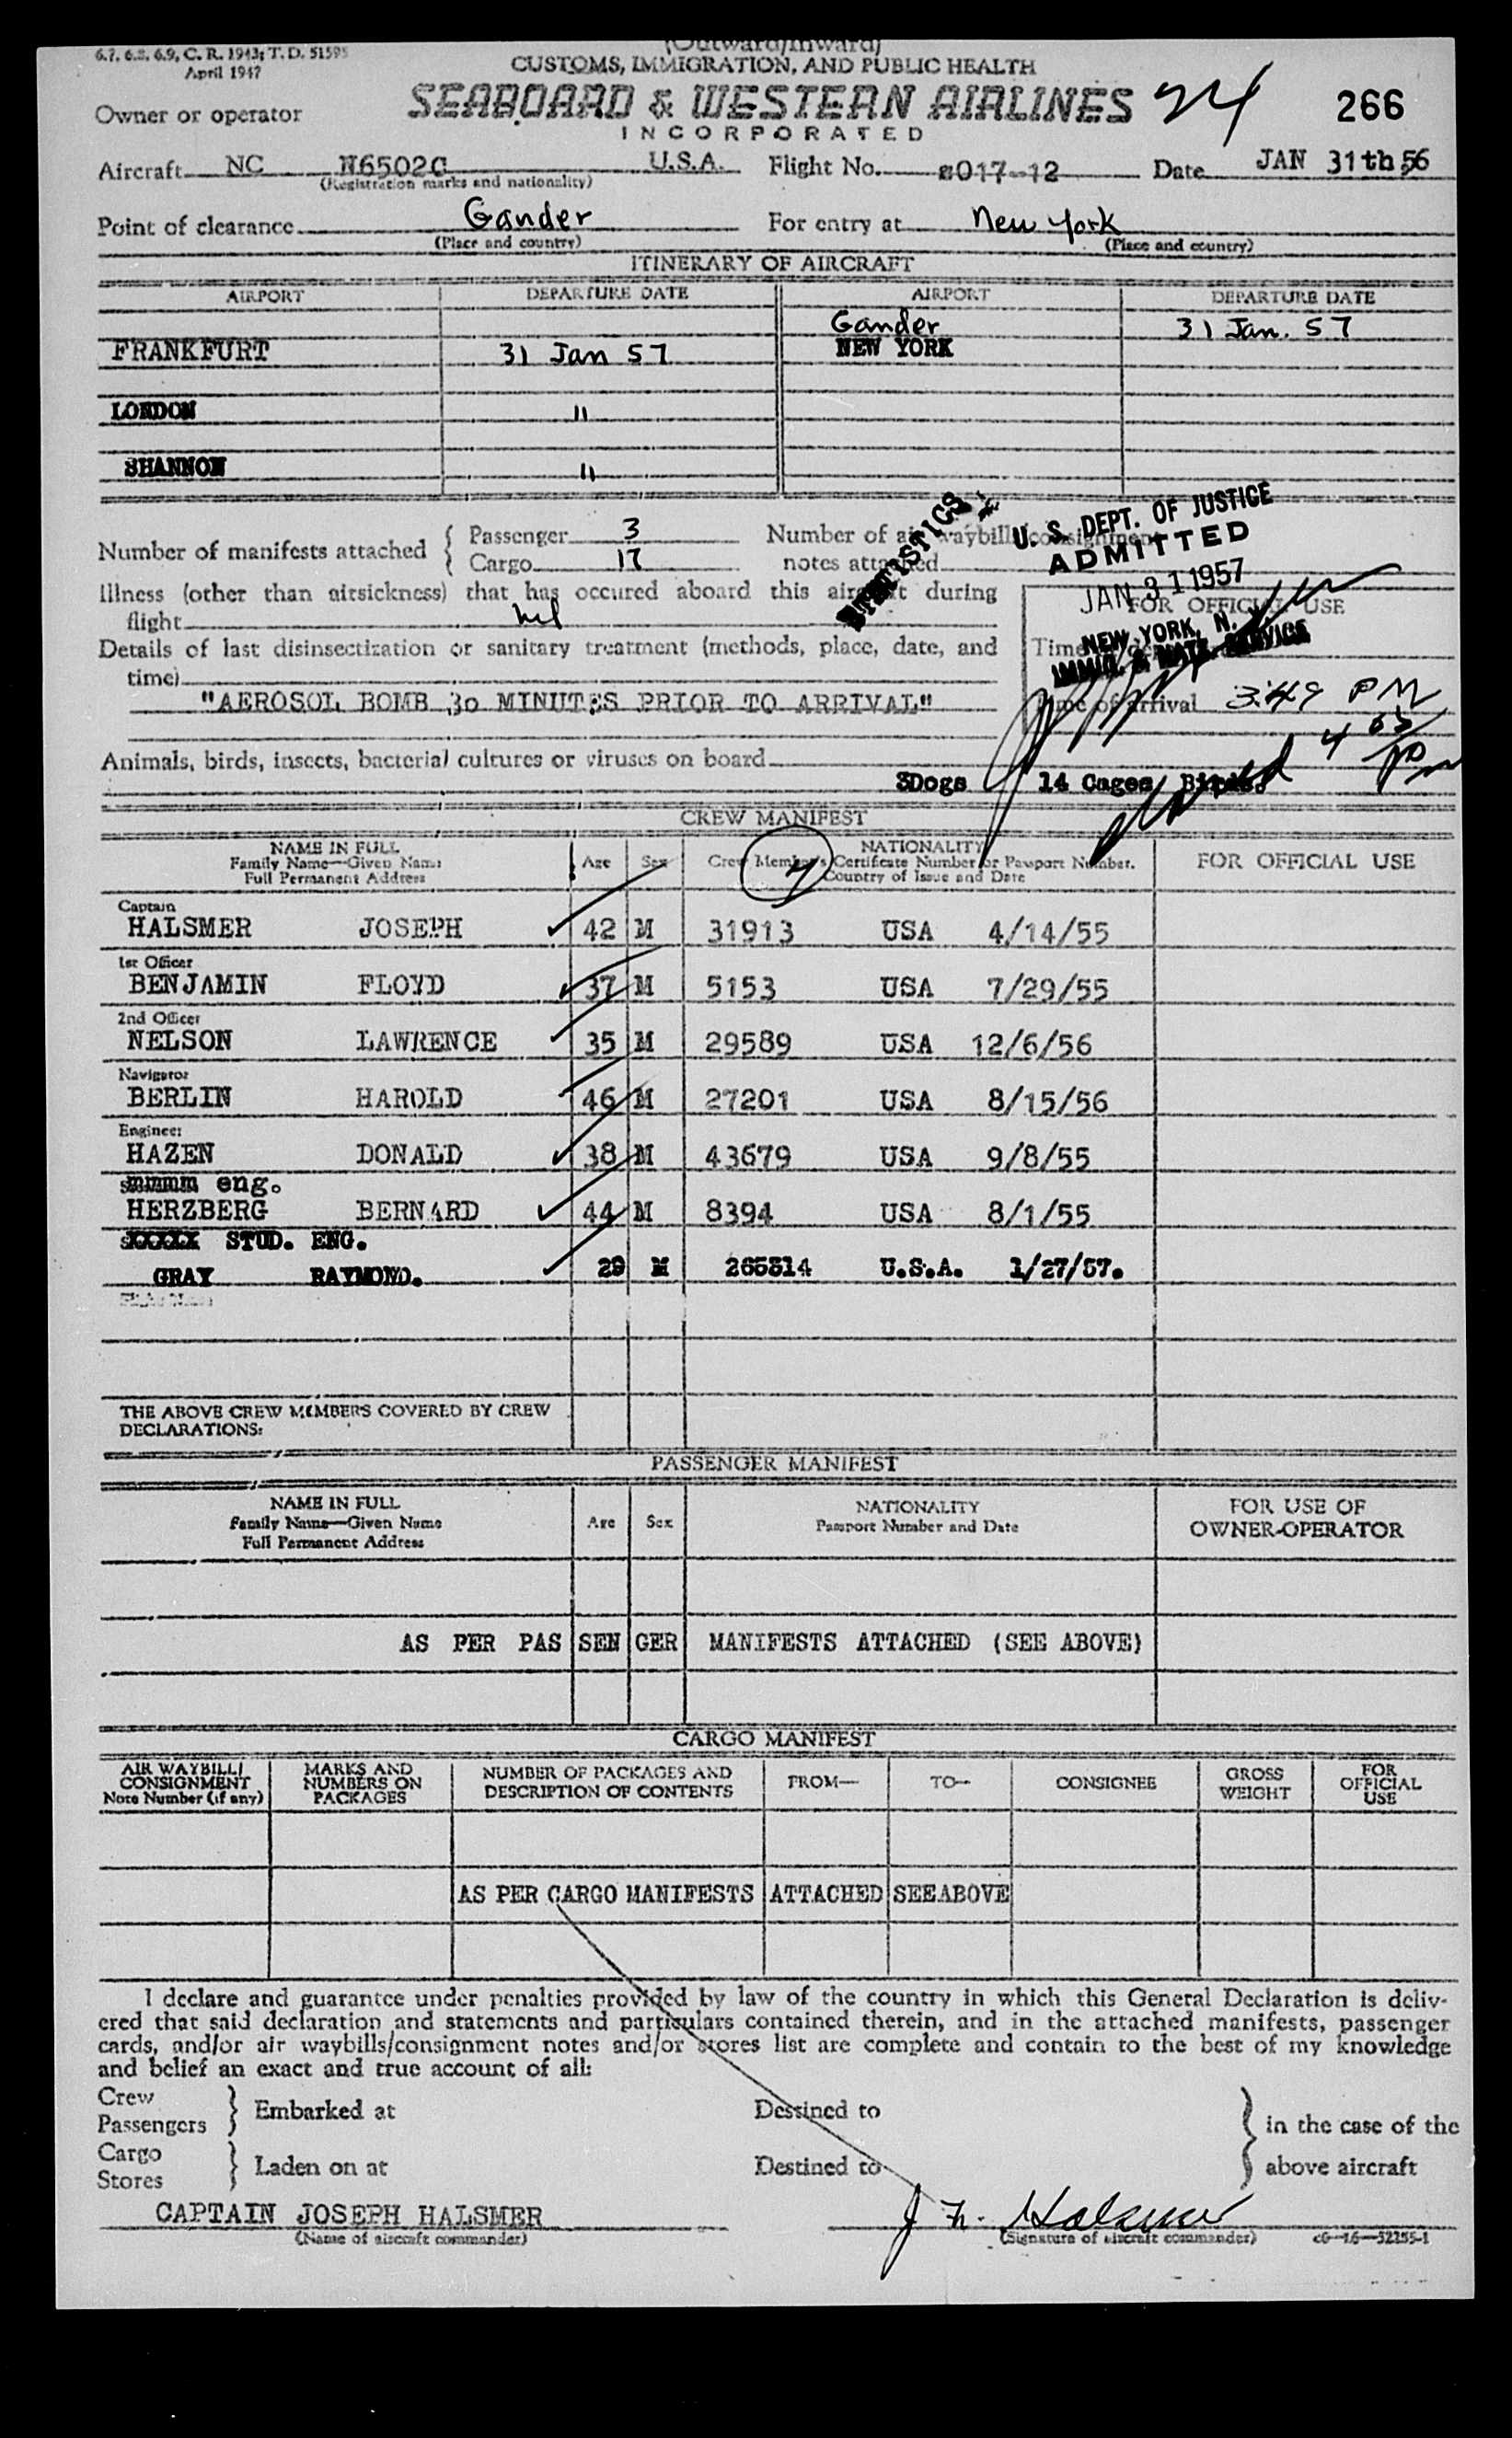 6.7, 6.8, 6.9, C. R. 1943; T. D. 51595
April 1947
(Outward/Inward)
CUSTOMS, IMMIGRATION, AND PUBLIC HEALTH
Owner or operator SEABOARD & WESTERN AIRLINES 24 266
INCORPORATED
Aircraft NC N6502C U.S.A. Flight No. 017-12 Date JAN 31th 56
(Registration marks and nationality)
Point of clearance Gander For entry at New York
(Place and country) (Place and country)
ITINERARY OF AIRCRAFT
AIRPORT DEPARTURE DATE AIRPORT DEPARTURE DATE
Gander 31 Jan. 57
FRANKFURT 31 Jan 57 NEW YORK
LONDON "
SHANNON "
Number of manifests attached { Passenger 3 Number of air waybills/consignment
Cargo 17 notes attached
STATISTICS
U. S. DEPT. OF JUSTICE
ADMITTED
JAN 31 1957
NEW YORK, N.
IMMIG. & NATZ. SERVICE
Illness (other than airsickness) that has occured aboard this aircraft during
flight nil
FOR OFFICIAL USE
Details of last disinsectization or sanitary treatment (methods, place, date, and
time)
Time
"AEROSOL BOMB 30 MINUTES PRIOR TO ARRIVAL"
Time of arrival 3:49 PM
4 05 pm
Animals, birds, insects, bacterial cultures or viruses on board
3Dogs 14 Cages Birds.
CREW MANIFEST
NAME IN FULL
Family Name—Given Name
Full Permanent Address
Age Sex
NATIONALITY
Crew Member's Certificate Number or Passport Number.
Country of Issue and Date
FOR OFFICIAL USE
7
Captain
HALSMER JOSEPH 42 M 31913 USA 4/14/55
1st Officer
BENJAMIN FLOYD 37 M 5153 USA 7/29/55
2nd Officer
NELSON LAWRENCE 35 M 29589 USA 12/6/56
Navigator
BERLIN HAROLD 46 M 27201 USA 8/15/56
Engineer
HAZEN DONALD 38 M 43679 USA 9/8/55
eng.
HERZBERG BERNARD 44 M 8394 USA 8/1/55
STUD. ENG.
GRAY RAYMOND. 29 M 265314 U.S.A. 1/27/57.
THE ABOVE CREW MEMBERS COVERED BY CREW
DECLARATIONS:
PASSENGER MANIFEST
NAME IN FULL
Family Name—Given Name
Full Permanent Address
Age Sex
NATIONALITY
Passport Number and Date
FOR USE OF
OWNER-OPERATOR
AS PER PAS SEN GER MANIFESTS ATTACHED (SEE ABOVE)
CARGO MANIFEST
AIR WAYBILL/
CONSIGNMENT
Note Number (if any)
MARKS AND
NUMBERS ON
PACKAGES
NUMBER OF PACKAGES AND
DESCRIPTION OF CONTENTS
FROM— TO— CONSIGNEE
GROSS
WEIGHT
FOR
OFFICIAL
USE
AS PER CARGO MANIFESTS ATTACHED SEE ABOVE
I declare and guarantee under penalties provided by law of the country in which this General Declaration is deliv-
ered that said declaration and statements and particulars contained therein, and in the attached manifests, passenger
cards, and/or air waybills/consignment notes and/or stores list are complete and contain to the best of my knowledge
and belief an exact and true account of all:
Crew
Passengers } Embarked at Destined to } in the case of the
Cargo
Stores } Laden on at Destined to above aircraft
CAPTAIN JOSEPH HALSMER J F. Halsmer
(Name of aircraft commander) (Signature of aircraft commander) c6—16—52255-1